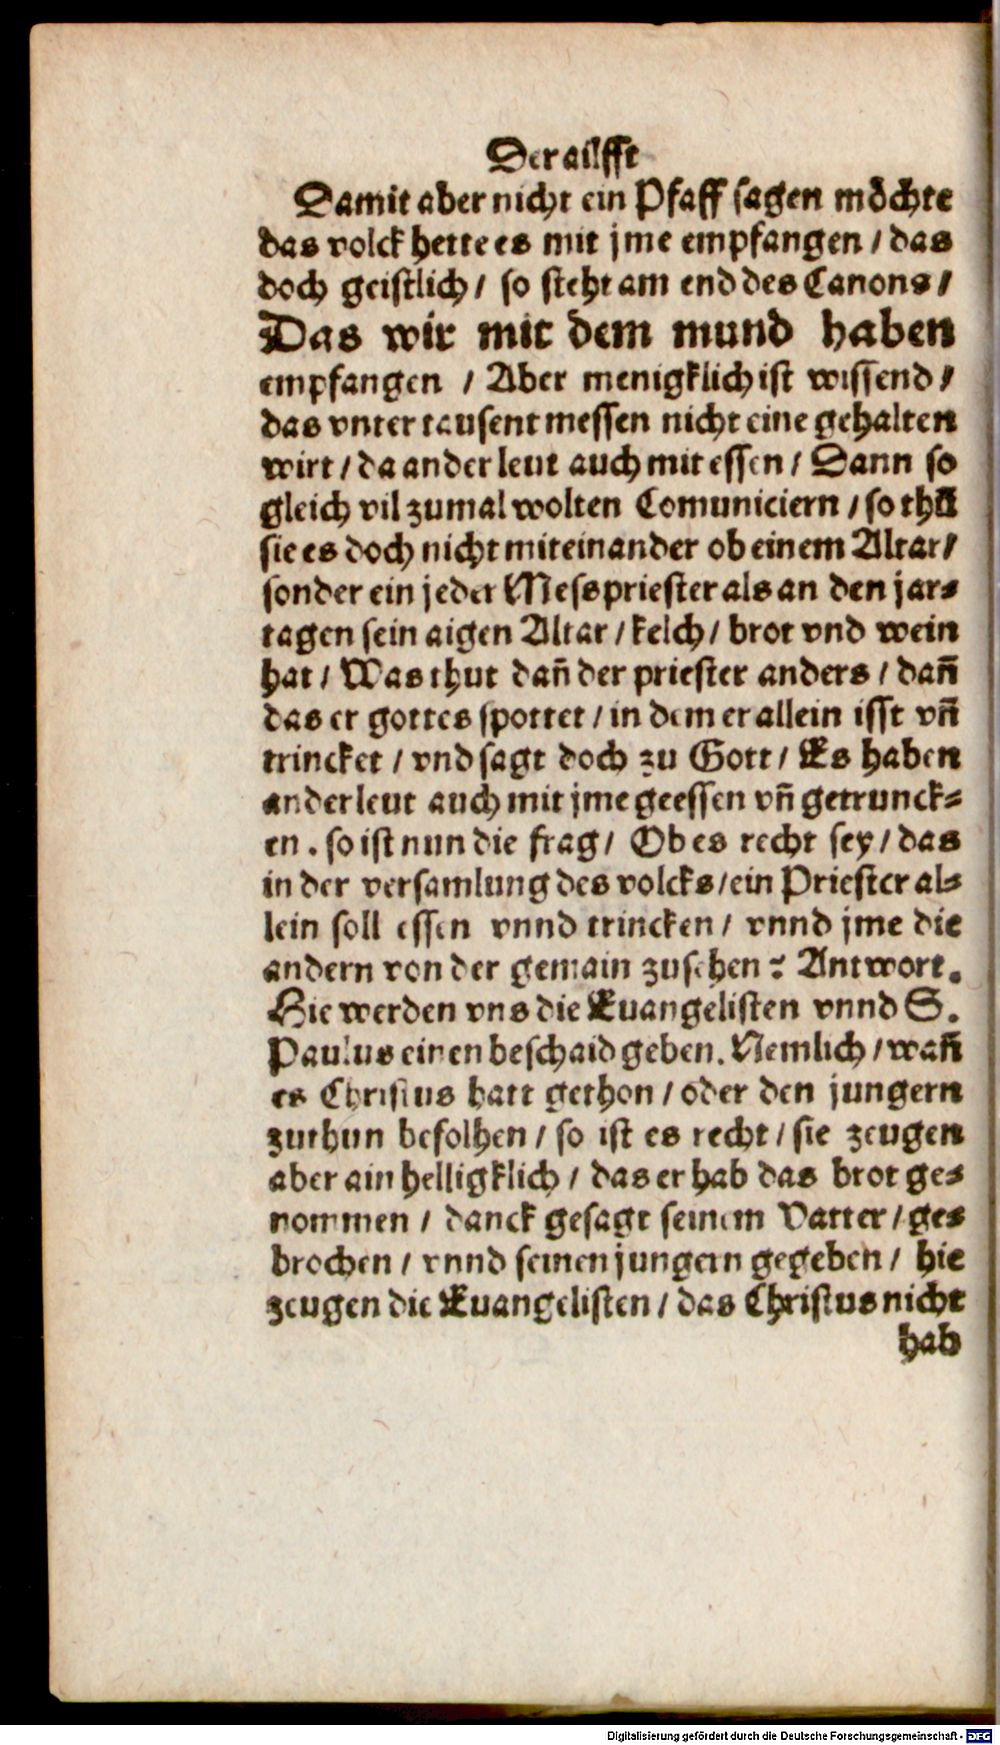 Der ailfft
Damit aber nicht ein Pfaff sagen möchte
das volck hette es mit jme empfangen / das
doch geistlich / so steht am end des Canons /
Das wir mit dem mund haben
empfangen / Aber menigklich ist wissend /
das vnter tausent messen nicht eine gehalten
wirt / da ander leut auch mit essen / Dann so
gleich vil zumal wolten Comuniciern / so thů
sie es doch nicht miteinander ob einem Altar /
sonder ein jeder Messpriester als an den jar⸗
tagen sein aigen Altar / kelch / brot vnd wein
hat / Was thut dañ der priester anders / dañ
das er gottes spottet / in dem er allein isst vñ
trincket / vnd sagt doch zu Gott / Es haben
ander leut auch mit jme geessen vñ getrunck⸗
en . so ist nun die frag / Ob es recht sey / das
in der versamlung des volcks / ein Priester al⸗
lein soll essen vnnd trincken / vnnd jme die
andern von der gemain zusehen ? Antwort.
Hie werden vns die Euangelisten vnnd S.
Paulus einen beschaid geben. Nemlich / wañ
es Christus hatt gethon / oder den jungern
zuthun befolhen / so ist es recht / sie zeugen
aber ain helligklich / das er hab das brot ge⸗
nommen / danck gesagt seinem Vatter / ge⸗
brochen / vnnd seinen jungern gegeben / hie
zeugen die Euangelisten / das Christus nicht
hab
Digitalisierung gefördert durch die Deutsche Forschungsgemeinschaft - DFG